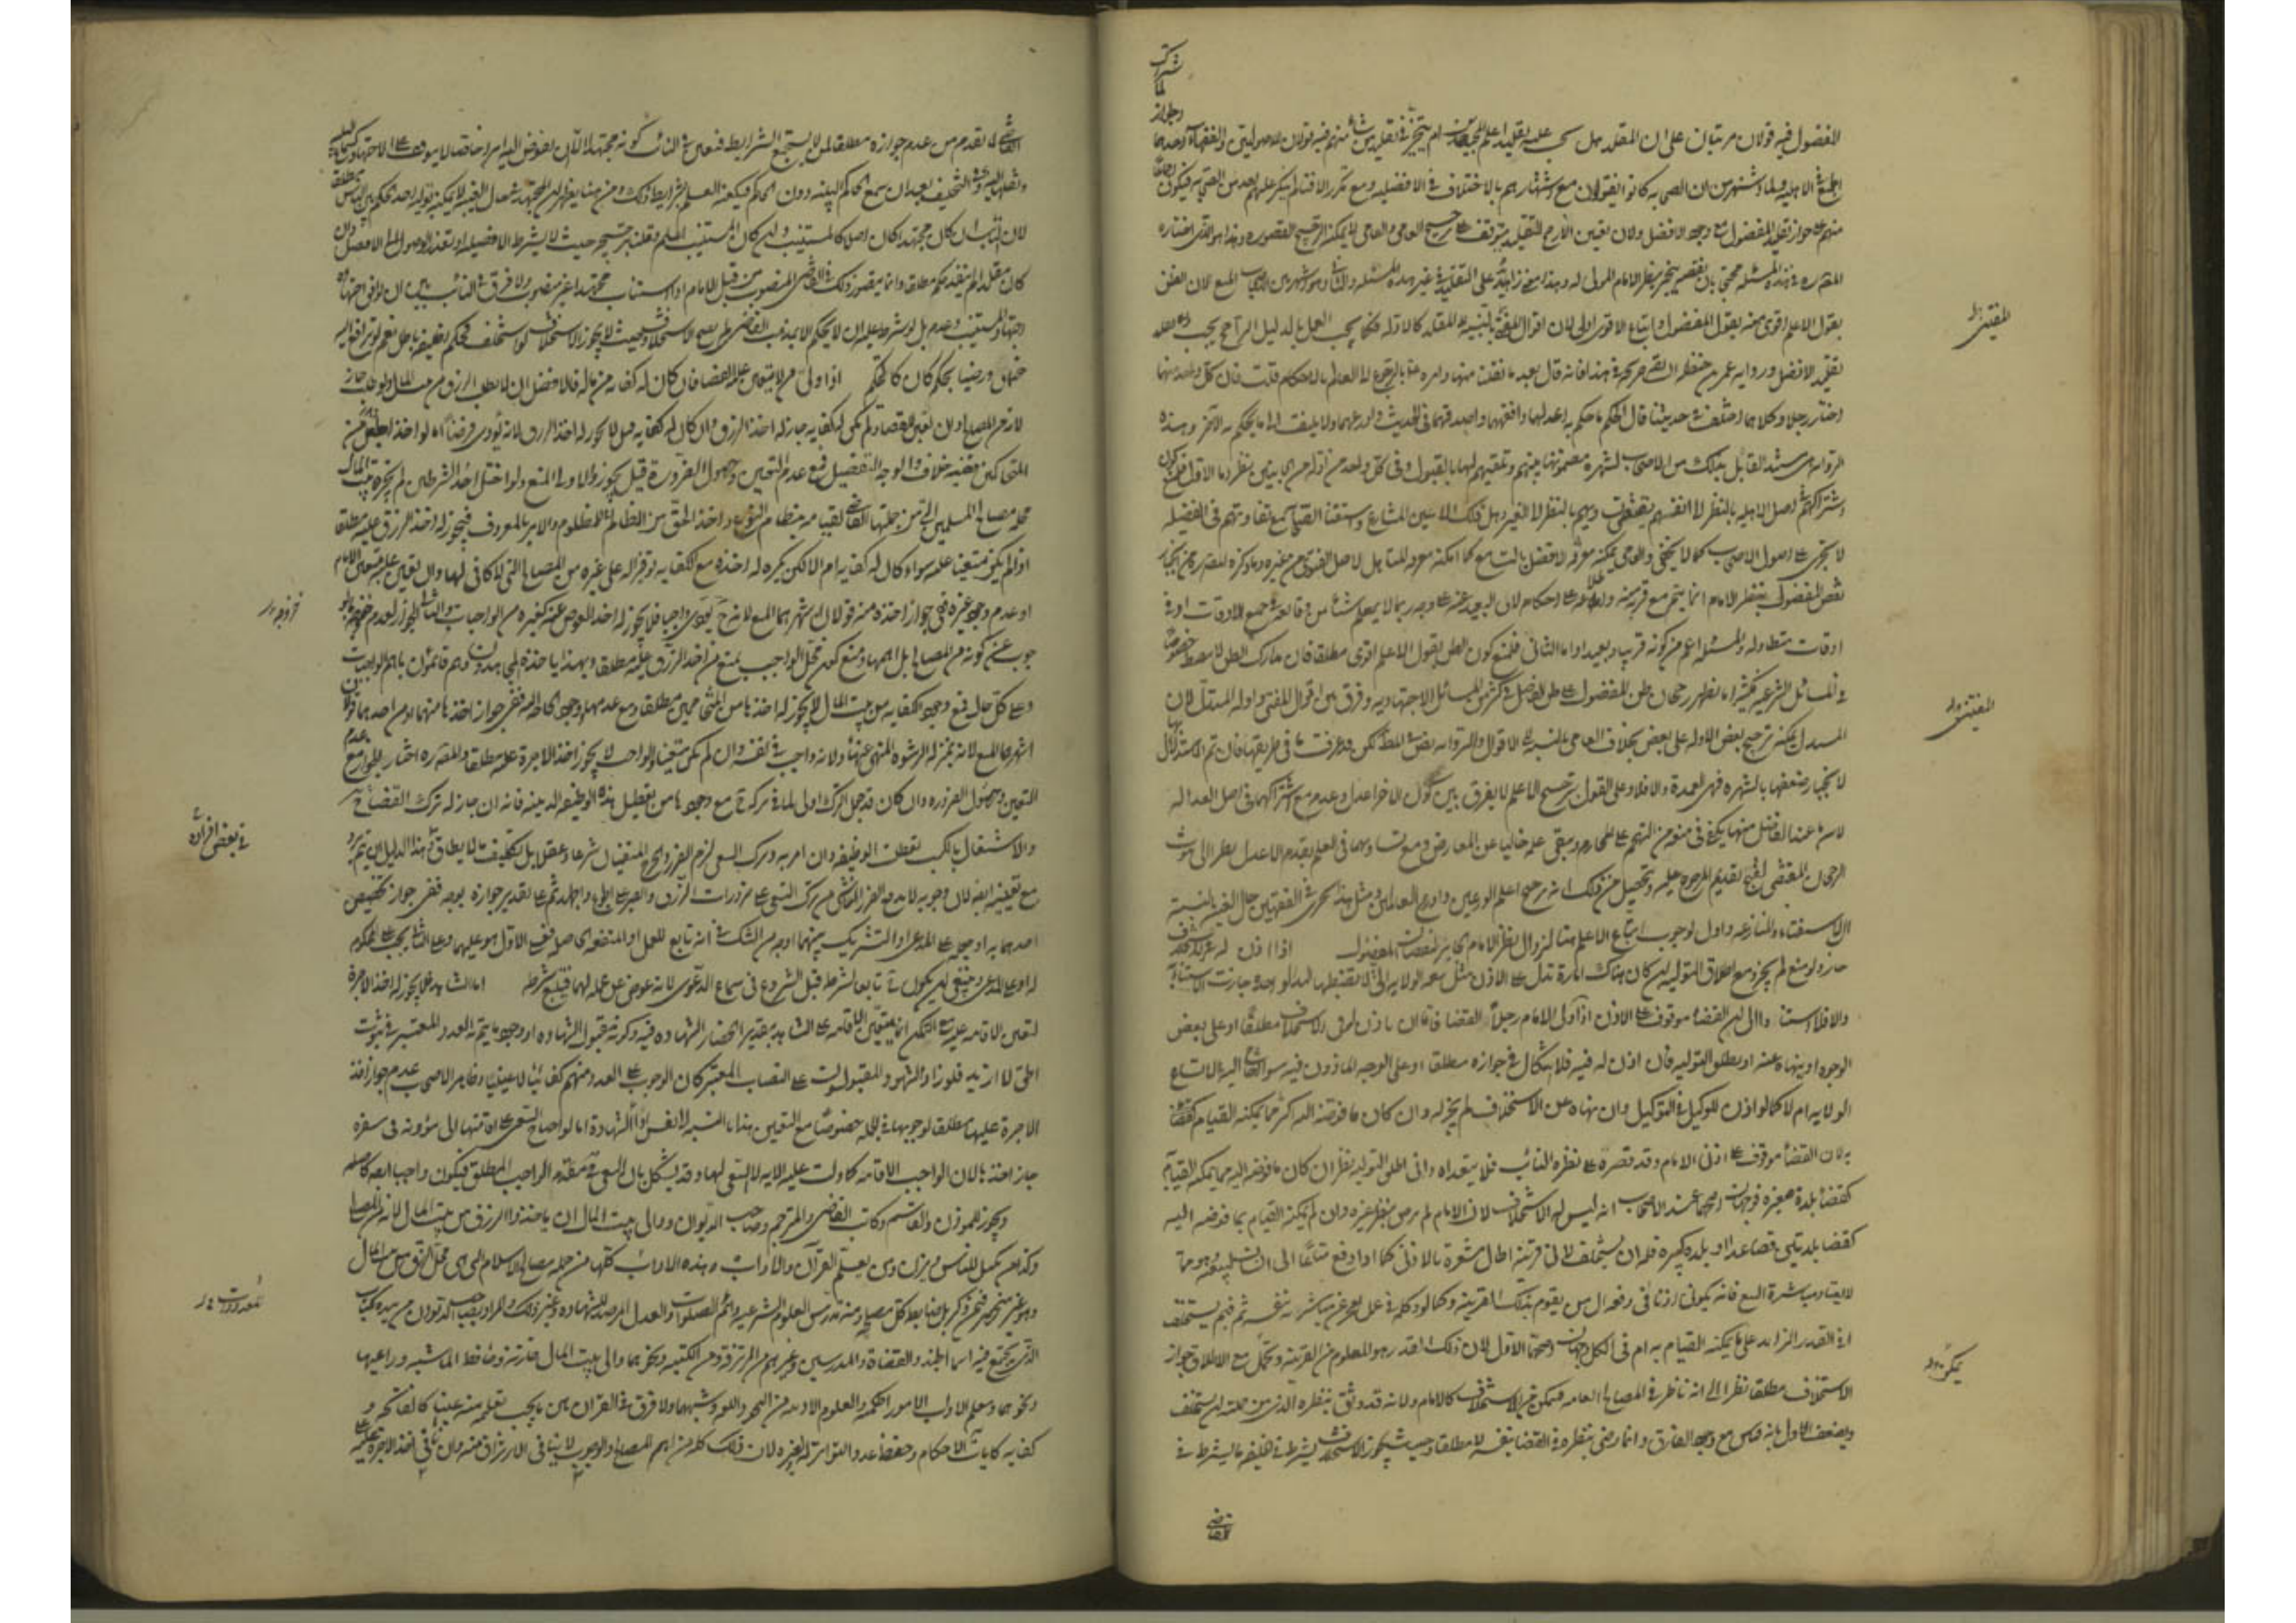 المفضول فيه قولان مرتبان على ان المقلد هل يجب عليه تقليد اعلم المجتهدين ام يتخير في تقليد من شاء منهم فيه قولان للاصوليين والفقهاء احدهما الجواز
لاشتراك الجميع في الاهلية ولما اشتهر من ان الصحابة كانوا يفتون مع اشتهارهم بالاختلاف في الافضلية ومع تكرر الافتاء لم ينكر عليهم احد من الصحابة فيكون اجماعا
منهم على جواز تقليد المفضول مع وجود الافضل ولان تعيين الارجح للتقليد يتوقف على ترجيح العامي والعامي لا يمكنه الترجيح لقصوره وهذا هو الذي اختاره
المصنف ره في هذه المسئلة محتجا بان نقصه ينجبر بنظر الامام المولى له وهذا معنى زائد على التقليد في غير هذه المسئلة والثاني وهو الاشهر بين الاصحاب المنع لان الظن
بقول الاعلم اقوى منه بقول المفضول واتباع الاقوى اولى لان اقوال المفتين بالنسبة الى المقلد كالادلة فكما يجب العمل بالدليل الراجح يجب
تقليد الافضل ورواية عمر بن حنظلة السابقة صريحة في هذا فانه قال بعد ما نقلت منها وامره بالرجوع الى العالم بالاحكام قلت فان كل واحد منهما
اختار رجلا وكلاهما اختلف في حديثنا قال الحكم ما حكم به اعدلهما وافقههما واصدقهما في الحديث واورعهما ولا يلتفت الى ما يحكم به الآخر وهذه
الرواية هي مستند القائل بذلك من الاصحاب لشهرة مضمونها بينهم وتلقيهم لها بالقبول وفي كل واحد من ادلة الجانبين نظر اما الاول فلمنع كون
اشتراكهم في اصل الاهلية بالنظر الى انفسهم يقتضي تساويهم بالنظر الى الغير وهل ذلك الا عين المتنازع واستفتاء الصحابة مع تفاوتهم في الفضيلة
لا يجري على اصول الاصحاب كما لا يخفى والعامي يمكنه معرفة الافضل بالتسامع كما امكنه معرفة المتاهل لاصل الفتوى من غيره وما ذكره المصنف ره من انجبار
نقص المفضول بنظر الامام انما يتم مع قربه منه واطلاعه على احكامه لان البعيد عنه على وجه ربما لا يعلم شيئا من وقايعه في جميع الاوقات او في
اوقات متطاولة والمسئلة اعم من كونه قريبا وبعيدا واما الثاني فلمنع كون الظن بقول الاعلم اقوى مطلقا فان مدارك الظن لا تضبط خصوصا
في المسائل الشرعية فكثيرا ما يظهر رجحان ظن المفضول على ظن الفاضل في كثير من المسائل الاجتهادية وفرق بين اقوال المفتي وادلة المستدل لان
المستدل يمكنه ترجيح بعض الادلة على بعض بخلاف العامي بالنسبة الى الاقوال والرواية نص في المط لكن قد عرفت ما في طريقها فان تم الاستدلال بها
لانجبار ضعفها بالشهرة فهي العمدة والا فلا وعلى القول بترجيح الاعلم لا يفرق بين كون الآخر اعدل وعدمه مع اشتراكهما في اصل العدالة
لان ما عند الفاضل منها يكفي في منعه من التهجم على المحارم ويبقى علمه خاليا عن المعارض ومع تساويهما في العلم يقدم الاعدل نظرا الى ثبوت
الرجحان المقتضي لقبح تقديم المرجوح عليه وتحصل من ذلك انه يرجح اعلم الورعين واورع العالمين ومثل هذا يجري في الفقهين حال الغيبة بالنسبة
الى الاستفتاء والمنازعة واولى لوجوب اتباع الاعلم هنا لزوال نظر الامام الجابر لنقصان المفضول اذا اذن له في الاستخلاف
جاز ولو منع لم يجز ومع اطلاق التولية ان كان هناك امارة تدل على الاذن مثل سعة الولاية التي لا تضبطها اليد الواحدة جازت الاستنابة
والا فلا استنادا الى ان القضاء موقوف على الاذن اذا ولى الامام رجلا القضاء فاما ان ياذن له في الاستخلاف مطلقا او على بعض
الوجوه او ينهاه عنه او يطلق التولية فان اذن له فيه فلا اشكال في جوازه مطلقا او على الوجه الماذون فيه سواء
الولاية ام لا كما لو اذن للوكيل في التوكيل وان نهاه عن الاستخلاف لم يجز له وان كان ما فوضه اليه اكثر مما يمكنه القيام بقضائه
به لان القضاء موقوف على اذن الامام وقد قصره على نظره فلا يتعداه وان اطلق التولية نظر ان كان ما فوضه اليه مما يمكنه القيام
كقضاء بلدة صغيرة فوجهان اصحهما عند الاصحاب انه ليس له الاستخلاف لان الامام لم يرض بنظر غيره وان لم يمكنه القيام بما فوضه اليه
كقضاء بلدتين فصاعدا او بلدة كبيرة فله ان يستخلف لان قرينة الحال مشعرة بالاذن كما اذا دفع متاعا الى انسان ليبيعه وهو مما
لا يعتاد مباشرة البيع فانه يكون اذنا في دفعه الى من يقوم بذلك للقرينة وكما لو وكله في عمل يعجز عن مباشرته بنفسه ثم فيم يستخلف
افي القدر الزائد على ما يمكنه القيام به ام في الكل وجهان اصحهما الاول لان ذلك القدر هو المعلوم من القرينة ويحتمل مع الاطلاق جواز
الاستخلاف مطلقا نظرا الى انه ناظر في المصالح العامة فيمكن من الاستخلاف كالامام ولانه قد وثق بنظره الذي من جملته ان يستخلف
ويضعف الاول بانه قياس مع وجود الفارق وانما رضي بنظره في القضاء بنفسه لا مطلقا وحيث يجوز الاستخلاف يشترط في خليفة ما يشترط في
المفتين
المفتين
يمكن
القاضي
القاضي لما تقدم من عدم جوازه مطلقا لمن لا يستجمع الشرايط فتعين في النائب كونه مجتهدا الا ان يفوض اليه امر خاص لا يتوقف على الاجتهاد كسماع البينة
ونقلها اليه وفي التحليف بعد ان سمع الحاكم البينة دون الحكم فيكفيه العلم بشرايط ذلك ومن هنا يظهر ان المجتهد في حال الغيبة لا يمكنه تولية احد الحكم بين الناس مطلقا
لان النائب ان كان مجتهدا كان اصلا كالمستنيب وان كان المستنيب اعلم وقلنا بترجيحه حيث لا يشترط الافضلية او تعذر الوصول الى الافضل وان
كان مقلدا لم ينفذ حكمه مطلقا وانما يتصور ذلك في القاضي المنصوب من قبل الامام اذا استناب مجتهدا غير منصوب ولا فرق في النائب بين ان يوافق اجتهاده
اجتهاد المستنيب وعدمه بل لو شرط عليه ان لا يحكم الا بمذهب القاضي لم يصح الاستخلاف وحيث لا يجوز الاستخلاف لو استخلف فحكم الخليفة باطل نعم لو ترافع اليه
خصمان ورضيا بحكمه كان كالمحكم اذا ولي من لا يتعين عليه القضاء فان كان له كفاية من ماله فالافضل ان لا يطلب الرزق من بيت المال ولو طلب جاز
لانه من المصالح وان تعين للقضاء ولم يكن له كفاية جاز له اخذ الرزق وان كان له كفاية قيل لا يجوز له اخذ الرزق لانه يؤدي فرضا اما لو اخذ الجعل من
المتحاكمين ففيه خلاف والوجه التفصيل فمع عدم التعيين وحصول الضرورة قيل يجوز والاولى المنع ولو اختل احد الشرطين لم يجز بيت المال
محله مصالح المسلمين التي من جملتها القاضي لقيامه بنظام النوع واخذ الحق من الظالم للمظلوم والامر بالمعروف فيجوز له اخذ الرزق عليه مطلقا
اذا لم يكن متعينا عليه سواء كان له كفاية ام لا لكن يكره له اخذه مع الكفاية توفيرا له على غيره من المصالح التي لا كافي لها وان تعين عليه بتعيين الامام
او عدم وجود غيره ففي جواز اخذه منه قولان اشهرهما المنع لانه ح يؤدي واجبا فلا يجوز له اخذ العوض عنه كغيره من الواجبات والثاني الجواز لعدم خروجه بالوجوب
عن كونه من المصالح بل اهمها ومنع كون فعل الواجب يمنع من اخذ الرزق عليه مطلقا وبهذا ياخذه المجاهدون وهم قائمون باهم الواجبات
وعلى كل حال فمع وجود الكفاية من بيت المال لا يجوز له اخذها من المتحاكمين مطلقا ومع عدمها ووجود الحاجة اليه ففي جواز اخذها منهما او من احدهما قولان
اشهرهما المنع لانه بمنزلة الرشوة المنهي عنها ولانه واجب في نفسه وان لم يكن متعينا والواجب لا يجوز اخذ الاجرة عليه مطلقا والمصنف ره اختار الجواز مع عدم
التعيين وحصول الضرورة وان كان قد جعل الترك اولى لما في تركه ح مع وجودها من تعطيل هذه الوظيفة الدينية فانه ان جاز له ترك القضاء ح
والاشتغال بالكسب تعطلت الوظيفة وان امر به وترك السعي لزم الضرر والحرج المنفيان شرعا وعقلا بل تكليف ما لا يطاق وهذا الدليل ان تم ورد
مع تعيينه ايضا لان وجوبه لا يدفع الضرر الناشئ من ترك السعي على ضرورات الرزق والصبر على الجوع والجهد ثم على تقدير جوازه بوجه ففي جواز تخصيص
احدهما به او جعله على المدعي او التشريك بينهما اوجه من الشك في انه تابع للعمل او المنفعة الحاصلة فعلى الاول هو عليهما وعلى الثاني يجب على المحكوم
له او على المدعي وينبغي ان يكون ح تابعا لشرطه قبل الشروع في سماع الدعوى لانه عوض عن عمله لهما فيتبع شرطه اما الشاهد فلا يجوز له اخذ الاجرة
لتعين الاقامة عليه مع التمكن انما يتعين الاقامة على الشاهد بتقدير انحصار الشهادة فيه وكونه مقبول الشهادة او وجود ما يتم به العدد المعتبر في ثبوت
الحق لا ازيد فلو زاد الشهود المقبولون على النصاب المعتبر كان الوجوب على العدد منهم كفائيا لا عينيا وظاهر الاصحاب عدم جواز اخذ
الاجرة عليها مطلقا لوجوبها في الجملة خصوصا مع التعيين هذا بالنسبة الى نفس اداء الشهادة اما لو احتاج السعي الى اقامتها الى مؤونة في سفره
جاز اخذها لان الواجب الاقامة كما دلت عليه الاية لا السعي لها وقد يشكل بان السعي مقدمة الواجب المطلق فيكون واجبا ايضا كاصله
ويجوز للمؤذن والقاسم وكاتب القاضي والمترجم وصاحب الديوان ووالي بيت المال ان ياخذوا الرزق من بيت المال لانه من المصالح
وكذا من يكيل للناس ويزن ومن يعلم القرآن والآداب هذه الآداب كلها من جملة مصالح الاسلام التي هي محل الرزق من بيت المال
وهو غير منحصر فيمن ذكر بل ضابطه كل مصلحة ومنه مدرس العلوم الشرعية وائمة الصلوات والعدل المرصد للشهادة وغير ذلك والمراد بصاحب الديوان من بيده الكتاب
الذي يجتمع فيه اسماء الجند والقضاة والمدرسين وغيرهم من المرتزقة ومن الكتبة ونحوهما ووالي بيت المال خازنه وحافظ الماشية وراعيها
ونحوهما ومعلم الآداب الامور الحكمية والعلوم الادبية من النحو واللغة وشبههما ولا فرق في القرآن بين ما يجب تعلمه منه عينا كالفاتحة و
كفاية كآيات الاحكام وحفظ عدد التواتر له وغيره لان ذلك كله من اهم المصالح والوجوب لا ينافي الارتزاق منه وان نافى اخذ الاجرة عليه
في بعض افراده